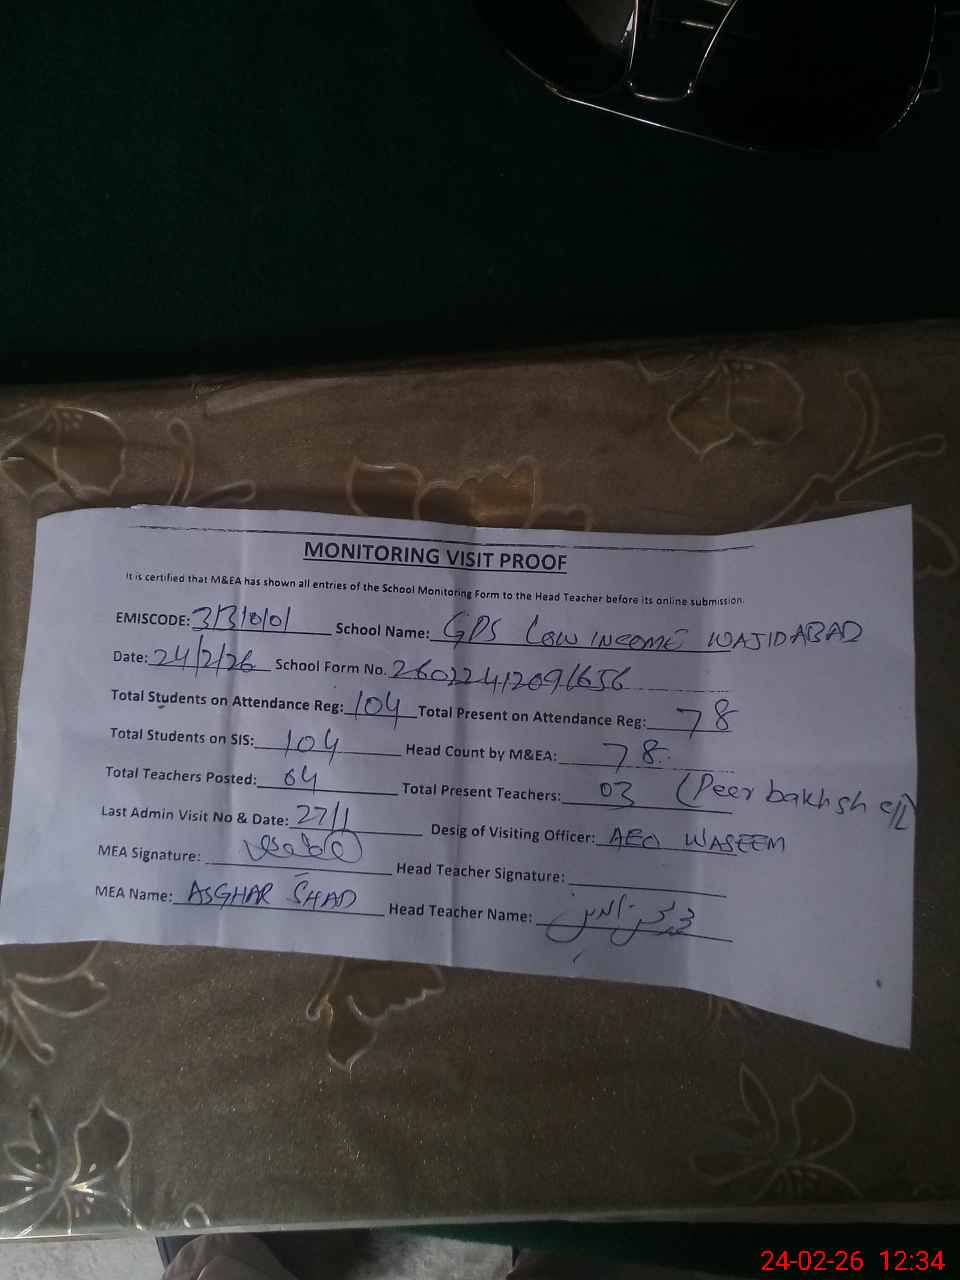 MONITORING VISIT PROOF
It is certified that M&EA has shown all entries of the School Monitoring Form to the Head Teacher before its online submission.
EMISCODE: School Name: GPS LOW INCOME WAJIDABAD
Date: 24/2/26 School Form No.
Total Students on Attendance Reg: 104 Total Present on Attendance Reg: 78
Total Students on SIS: 104 Head Count by M&EA: 78
Total Teachers Posted: 04 Total Present Teachers: 03 (Peer bakhsh c/L)
Last Admin Visit No & Date: 27/1 Desig of Visiting Officer: AEO WASEEM
MEA Signature: Head Teacher Signature:
MEA Name: ASGHAR SHAD Head Teacher Name:
24-02-26 12:34